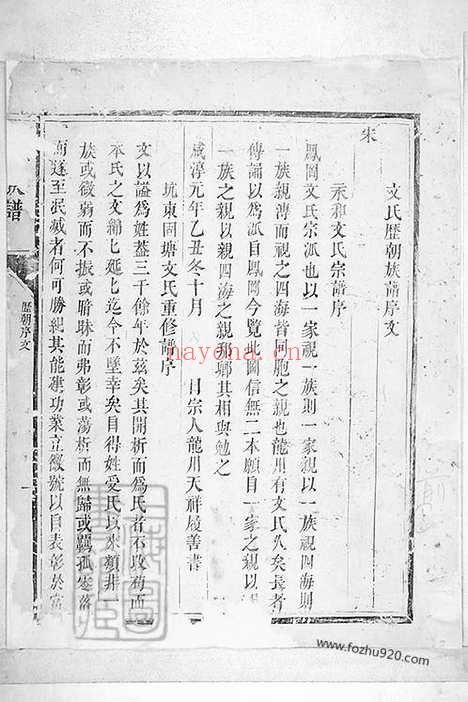 文氏歷朝族譜序文
宋
永和文氏宗譜序
鳳岡文氏宗派也以一家視一族則一家親以一族視四海則
一族親溥而視之四海皆同胞之親也龍川有文氏久矣長者
傳誦以為派自鳳岡今覧此圖信無二本願自一家之親以
一族之親以親四海之親那鄉其相與勉之
咸淳元年乙丑冬十月 日宗人龍川天祥履善書
坑東固塘文氏重修譜序
文以謚為姓葢三千餘年於茲矣其開析而為氏者不改茍而
本氏之文綿匕延匕迄今不墜幸矣自得姓受氏以來類非一
族或微弱而不振或暗眛而弗彰或蕩析而無歸或羈孤寥落
而遂至泯滅者何可勝紀其能建功業立徽號以自表彰於當
譜
歷朝序文
nayona.cn
www.fozhu920.com